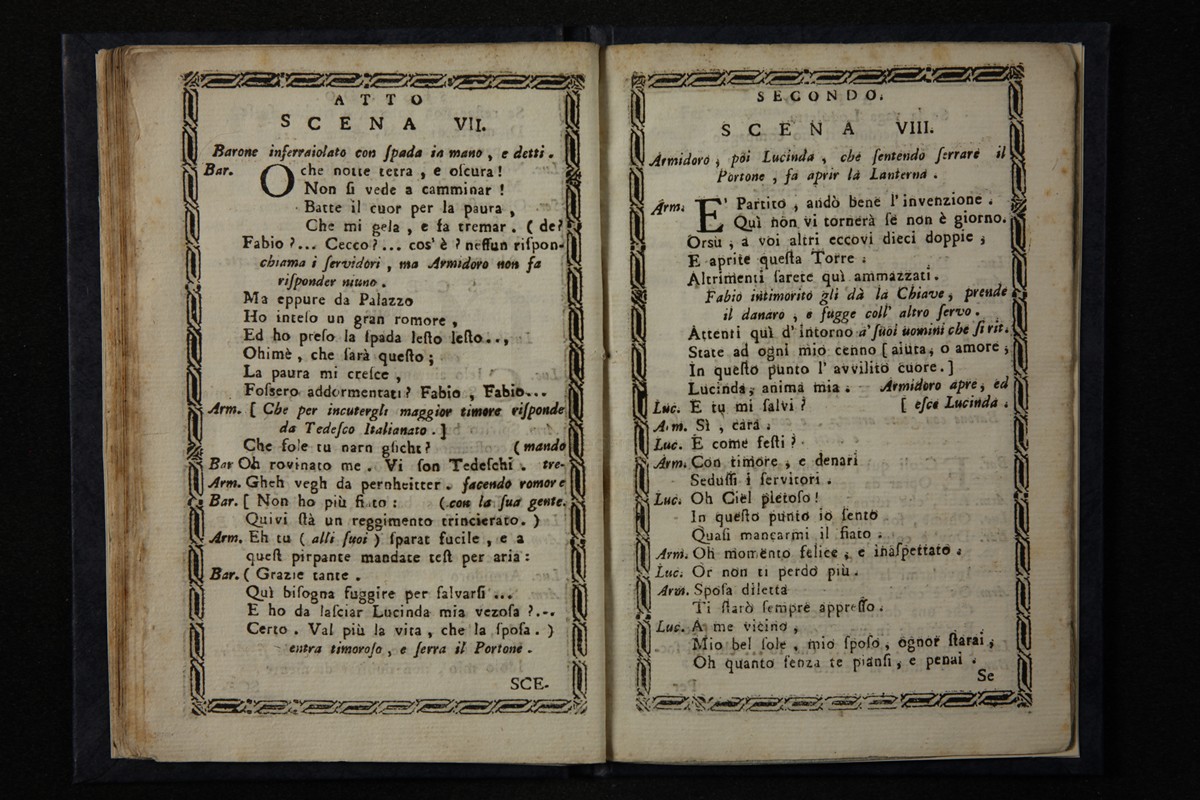 ATTO
SCENA VII.
Barone inferraiolato con ſpada in mano, e detti.
Bar. O che notte tetra, e oſcura!
Non ſi vede a camminar!
Batte il cuor per la paura,
Che mi gela, e fa tremar. (de?
Fabio?... Cecco?... cos' è? neſſun riſpon-
chiama i ſervidori, ma Armidoro non fa
riſponder niuno.
Ma eppure da Palazzo
Ho inteſo un gran romore,
Ed ho preſo la ſpada leſto leſto..,
Ohimè, che ſarà queſto;
La paura mi creſce,
Foſsero addormentati? Fabio, Fabio...
Arm. [ Che per incutergli maggior timore riſponde
da Tedeſco Italianato. ]
Che ſole tu narn gſicht? (mando
Bar Oh rovinato me. Vi ſon Tedeſchi. tre-
Arm. Gheh vegh da pernheitter. facendo romore
Bar. [ Non ho più fi to: (con la ſua gente.
Quivi ſtà un reggimento trincierato. )
Arm. Eh tu ( alli ſuoi ) ſparat fucile, e a
queſt pirpante mandate teſt per aria:
Bar. ( Grazie tante.
Quì biſogna fuggire per ſalvarſi...
E ho da laſciar Lucinda mia vezoſa?...
Certo. Val più la vita, che la ſpoſa. )
entra timoroſo, e ſerra il Portone.
SCE-
SECONDO.
SCENA VIII.
Armidoro, poi Lucinda, che ſentendo ſerrare il
Portone, fa aprir la Lanterna.
Arm. E' Partito, andò bene l' invenzione.
Quì non vi tornerà ſe non è giorno.
Orsù, a voi altri eccovi dieci doppie;
E aprite queſta Torre:
Altrimenti ſarete quì ammazzati.
Fabio intimorito gli dà la Chiave, prende
il danaro, e fugge coll' altro ſervo.
Attenti quì d' intorno a' ſuoi uomini che ſi rit.
State ad ogni mio cenno [ aiuta, o amore,
In queſto punto l' avvilito cuore. ]
Lucinda, anima mia. Armidoro apre, ed
Luc. E tu mi ſalvi? [ eſce Lucinda.
Arm. Sì, cara.
Luc. E come feſti?
Arm. Con timore, e denari
Seduſſi i ſervitori.
Luc. Oh Ciel pietoſo!
In queſto punto io ſento
Quaſi mancarmi il fiato.
Arm. Oh momento felice, e inaſpettato.
Luc. Or non ti perdo più.
Arm. Spoſa diletta
Ti ſtarò ſempre appreſſo.
Luc. A me vicino,
Mio bel ſole, mio ſpoſo, ognor ſtarai,
Oh quanto ſenza te pianſi, e penai.
Se